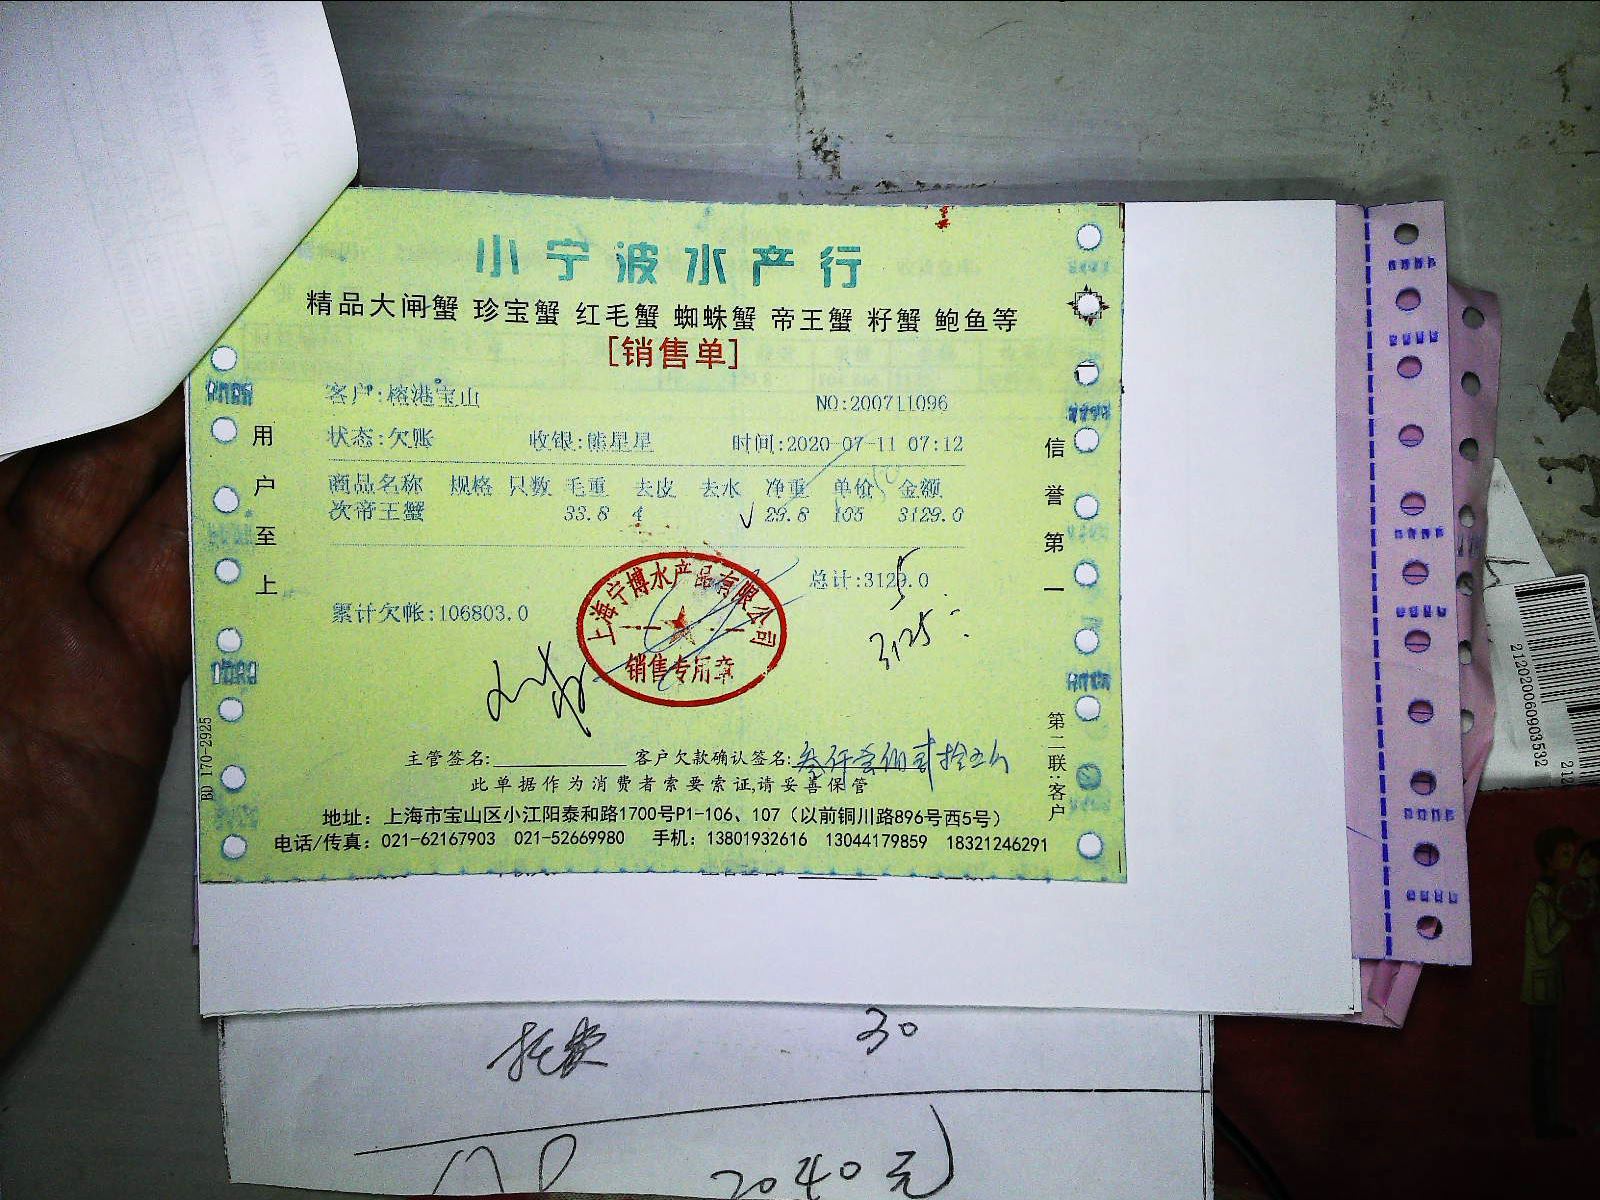 小宁波水产行
精品大闸蟹 珍宝蟹 红毛蟹 蜘蛛蟹 帝王蟹 籽蟹 鲍鱼等
[销售单]
客户:榕港宝山 NO:200711096
状态:欠账 收银:熊星星 时间:2020-07-11 07:12
商品名称 规格 只数 毛重 去皮 去水 净重 单价 金额
次帝王蟹 33.8 4 √ 29.8 105 3129.0
总计:3129.0
5
累计欠帐:106803.0
3125
上海宁博水产品有限公司
销售专用章
主管签名: 客户欠款确认签名:叁仟壹佰贰拾五
此单据作为消费者索要索证,请妥善保管
地址：上海市宝山区小江阳泰和路1700号P1-106、107（以前铜川路896号西5号）
电话/传真：021-62167903 021-52669980 手机：13801932616 13044179859 18321246291
用户至上
信誉第一
第二联:客户
BD 170-2925
30
2040元
212020060903532
212